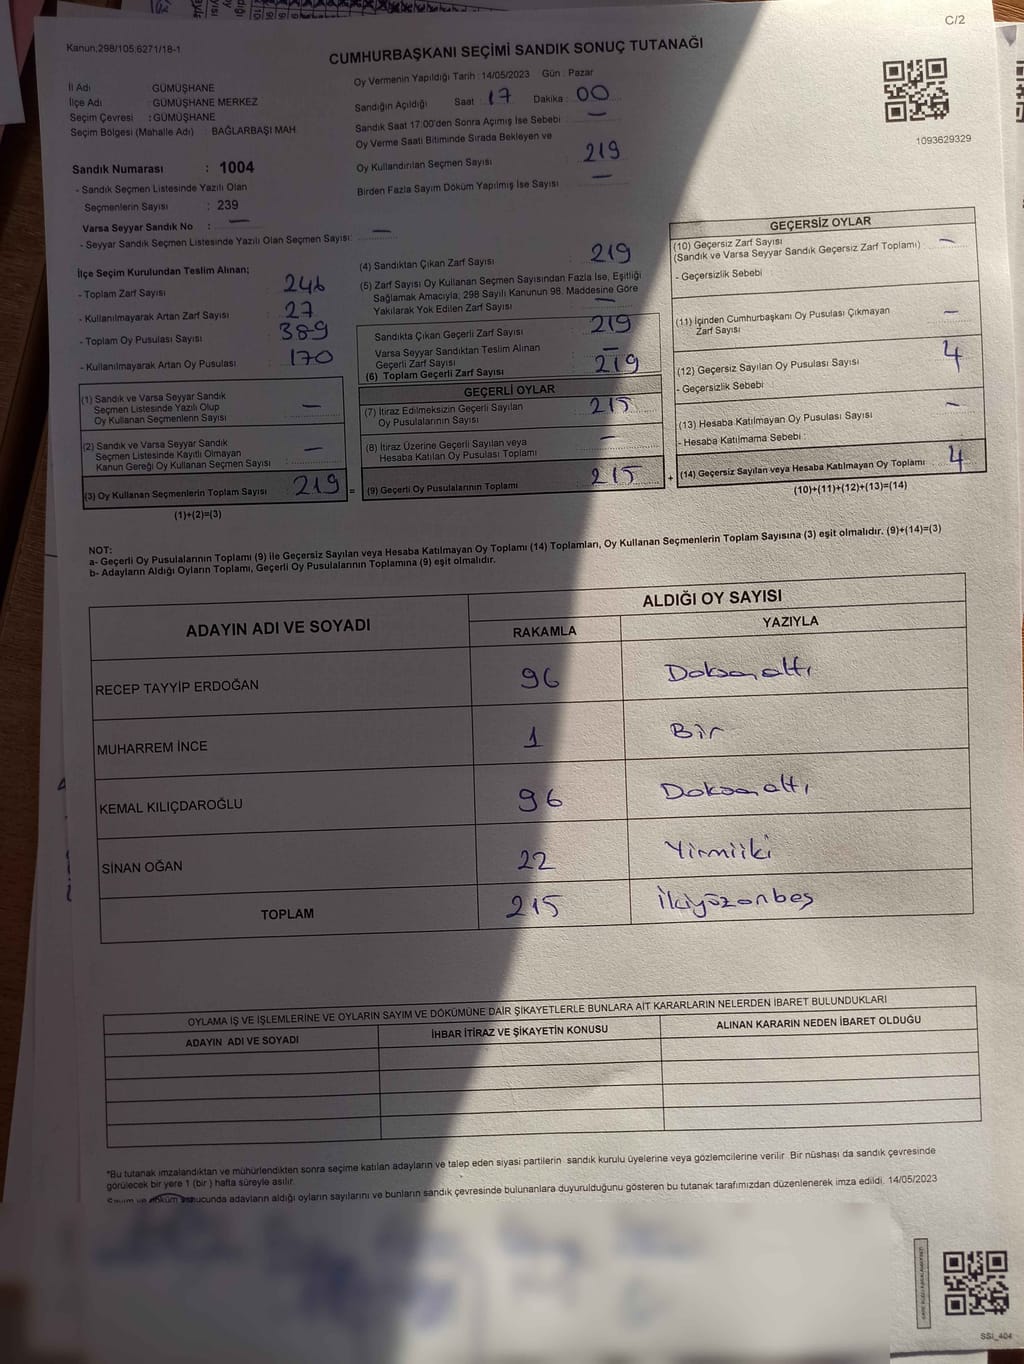 C/2
Kanun;298/105;6271/18-1
CUMHURBAŞKANI SEÇİMİ SANDIK SONUÇ TUTANAĞI
1093629329
İl Adı GÜMÜŞHANE
İlçe Adı : GÜMÜŞHANE MERKEZ
Seçim Çevresi : GÜMÜŞHANE
Seçim Bölgesi (Mahalle Adı) : BAĞLARBAŞI MAH.
Sandık Numarası : 1004
- Sandık Seçmen Listesinde Yazılı Olan
Seçmenlerin Sayısı : 239
Varsa Seyyar Sandık No : —
- Seyyar Sandık Seçmen Listesinde Yazılı Olan Seçmen Sayısı: —
Oy Vermenin Yapıldığı Tarih : 14/05/2023 Gün : Pazar
Sandığın Açıldığı Saat : 17 Dakika : 00
Sandık Saat 17:00'den Sonra Açımış İse Sebebi : —
Oy Verme Saati Bitiminde Sırada Bekleyen ve
Oy Kullandırılan Seçmen Sayısı 219
Birden Fazla Sayım Döküm Yapılmış İse Sayısı —
İlçe Seçim Kurulundan Teslim Alınan;
- Toplam Zarf Sayısı 246
- Kullanılmayarak Artan Zarf Sayısı 27
- Toplam Oy Pusulası Sayısı 389
- Kullanılmayarak Artan Oy Pusulası 170
(1) Sandık ve Varsa Seyyar Sandık
Seçmen Listesinde Yazılı Olup
Oy Kullanan Seçmenlerin Sayısı —
(2) Sandık ve Varsa Seyyar Sandık
Seçmen Listesinde Kayıtlı Olmayan
Kanun Gereği Oy Kullanan Seçmen Sayısı —
(3) Oy Kullanan Seçmenlerin Toplam Sayısı 219 =
(1)+(2)=(3)
(4) Sandıktan Çıkan Zarf Sayısı 219
(5) Zarf Sayısı Oy Kullanan Seçmen Sayısından Fazla İse, Eşitliği
Sağlamak Amacıyla; 298 Sayılı Kanunun 98. Maddesine Göre
Yakılarak Yok Edilen Zarf Sayısı —
Sandıkta Çıkan Geçerli Zarf Sayısı 219
Varsa Seyyar Sandıktan Teslim Alınan
Geçerli Zarf Sayısı —
(6) Toplam Geçerli Zarf Sayısı 219
GEÇERLİ OYLAR
(7) İtiraz Edilmeksizin Geçerli Sayılan
Oy Pusulalarının Sayısı 215
(8) İtiraz Üzerine Geçerli Sayılan veya
Hesaba Katılan Oy Pusulası Toplamı —
(9) Geçerli Oy Pusulalarının Toplamı 215 +
GEÇERSİZ OYLAR
(10) Geçersiz Zarf Sayısı
(Sandık ve Varsa Seyyar Sandık Geçersiz Zarf Toplamı) —
- Geçersizlik Sebebi :
(11) İçinden Cumhurbaşkanı Oy Pusulası Çıkmayan
Zarf Sayısı —
(12) Geçersiz Sayılan Oy Pusulası Sayısı 4
- Geçersizlik Sebebi :
(13) Hesaba Katılmayan Oy Pusulası Sayısı —
- Hesaba Katılmama Sebebi :
(14) Geçersiz Sayılan veya Hesaba Katılmayan Oy Toplamı 4
(10)+(11)+(12)+(13)=(14)
NOT:
a- Geçerli Oy Pusulalarının Toplamı (9) ile Geçersiz Sayılan veya Hesaba Katılmayan Oy Toplamı (14) Toplamları, Oy Kullanan Seçmenlerin Toplam Sayısına (3) eşit olmalıdır. (9)+(14)=(3)
b- Adayların Aldığı Oyların Toplamı, Geçerli Oy Pusulalarının Toplamına (9) eşit olmalıdır.
ADAYIN ADI VE SOYADI
ALDIĞI OY SAYISI
RAKAMLA YAZIYLA
RECEP TAYYİP ERDOĞAN 96 Doksanaltı
MUHARREM İNCE 1 Bir
KEMAL KILIÇDAROĞLU 96 Doksanaltı
SİNAN OĞAN 22 Yirmiiki
TOPLAM 215 İkiyüzonbeş
OYLAMA İŞ VE İŞLEMLERİNE VE OYLARIN SAYIM VE DÖKÜMÜNE DAİR ŞİKAYETLERLE BUNLARA AİT KARARLARIN NELERDEN İBARET BULUNDUKLARI
ADAYIN ADI VE SOYADI İHBAR İTİRAZ VE ŞİKAYETİN KONUSU ALINAN KARARIN NEDEN İBARET OLDUĞU
*Bu tutanak imzalandıktan ve mühürlendikten sonra seçime katılan adayların ve talep eden siyasi partilerin sandık kurulu üyelerine veya gözlemcilerine verilir. Bir nüshası da sandık çevresinde
görülecek bir yere 1 (bir ) hafta süreyle asılır.
Sayım ve döküm sonucunda adayların aldığı oyların sayılarını ve bunların sandık çevresinde bulunanlara duyurulduğunu gösteren bu tutanak tarafımızdan düzenlenerek imza edildi. 14/05/2023
SSI_404